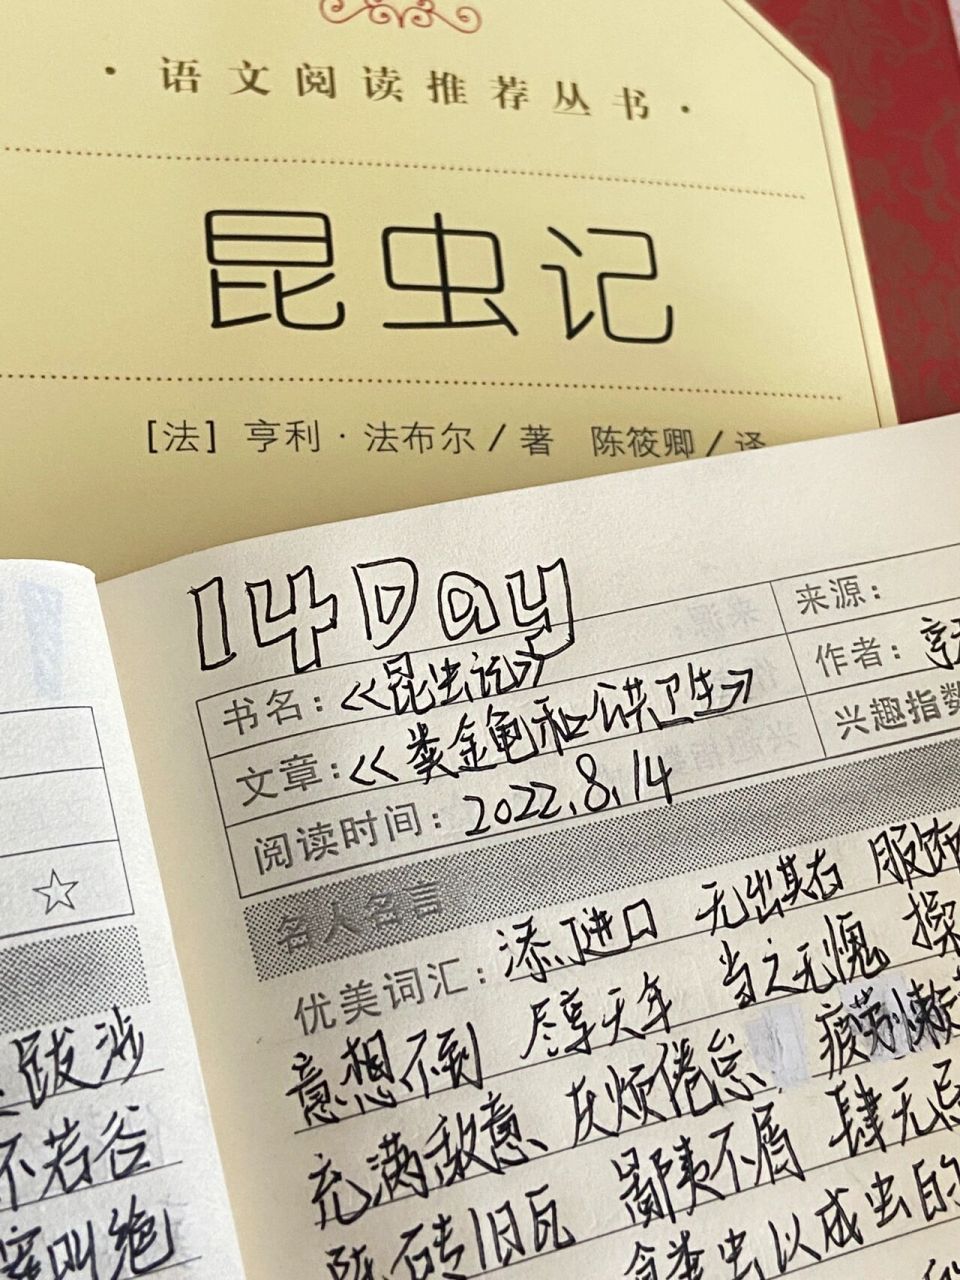 · 语文阅读推荐丛书 ·
昆虫记
[法] 亨利·法布尔/著 陈筱卿/译
14 Day
来源:
书名: 《昆虫记》
作者:
文章: 《粪金龟和公共卫生》
兴趣指数
阅读时间: 2022.8.14
名人名言
优美词汇: 添 进口 无出其右 服饰
意想不到 尽享天年 当之无愧
充满敌意 厌烦倦怠 疲劳 懒
旧瓦 鄙夷不屑 肆无忌
虫以成虫的
跋涉
不若谷
叫绝